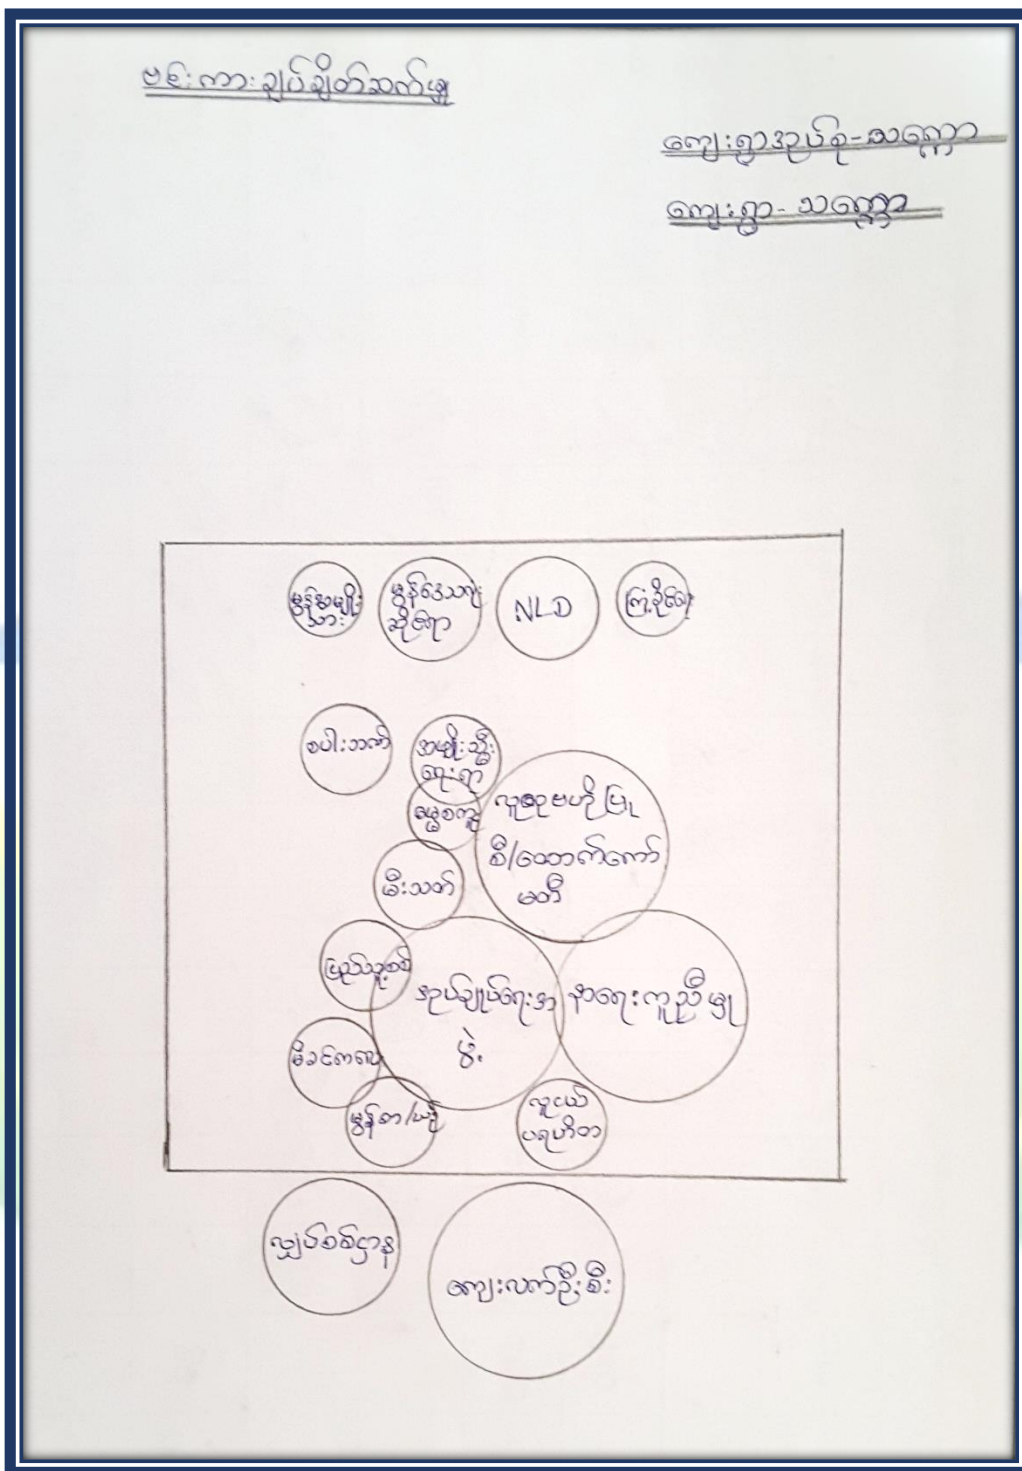 ဗင်းကားချပ်ချိတ်ဆက်မှု
ကျေးရွာအုပ်စု-သဏ္ဌော
ကျေးရွာ-သဏ္ဌော
မွန်အမျိုး
သား
မွန်ဒေသလုံး
ဆိုင်ရာ
NLD
ကြံ့ခိုင်ရေး
စပါးဘဏ်
အမျိုးသ္မီး
ရေးရာ
ဓမ္မစကူး
လူထုဗဟိုပြု
စီ/ထောက်ကော်
မတီ
မီးသတ်
ပြည်သူ့စစ်
အုပ်ချုပ်ရေးအ
ဖွဲ့
နာရေးကူညီမှု
မိခင်ကလေး
မွန်စာ/ယဉ်
လူငယ်
ပရဟိတ
လျှပ်စစ်ဌာန
ကျေးလက်ဦးစီး